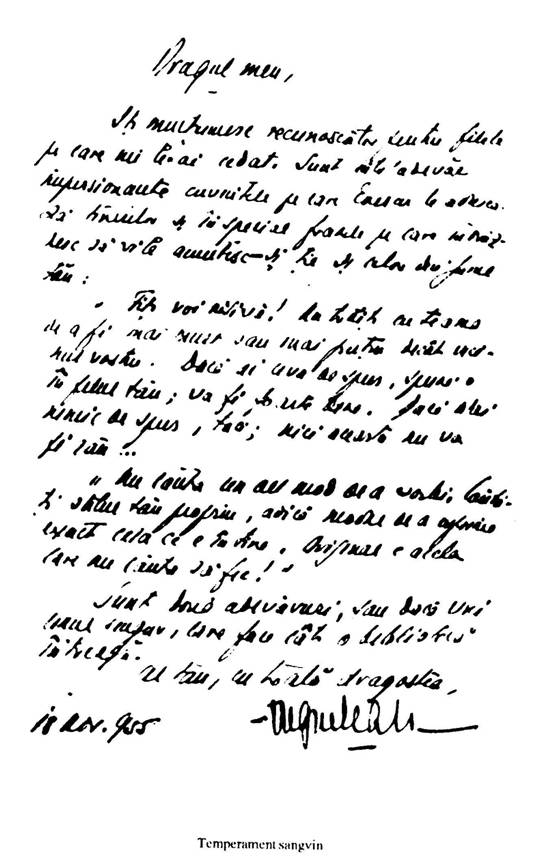 Dragul meu,
Iți mulțumesc recunoscător pentru filele
pe care mi le-ai cedat. Sunt într'adevăr
impresionante cuvintele pe care Enescu le adresea-
ză tinerilor și în special frazele pe care îndrăz-
nesc să vi le amintesc – și ție și celor din juru
tău:
" Fiți voi înși-vă! Nu trăiți cu teama
de a fi mai mult sau mai puțin decât veci-
nul vostru. Dacă ai ceva de spus, spune-o
în felul tău; va fi foarte bine. Dacă n'ai
nimic de spus, taci; nici aceasta nu va
fi rău...
" Nu căuta un alt mod de a vorbi. Caută-
ți stilul tău propriu, adică modul de a exprima
exact ceia ce e în tine. Original e acela
care nu caută să fie! "
Sunt două adevăruri, sau dacă vrei
unul singur, care fac cât o bibliotecă
întreagă.
Al tău, cu toată dragostea,
18 nov. 955
Temperament sangvin